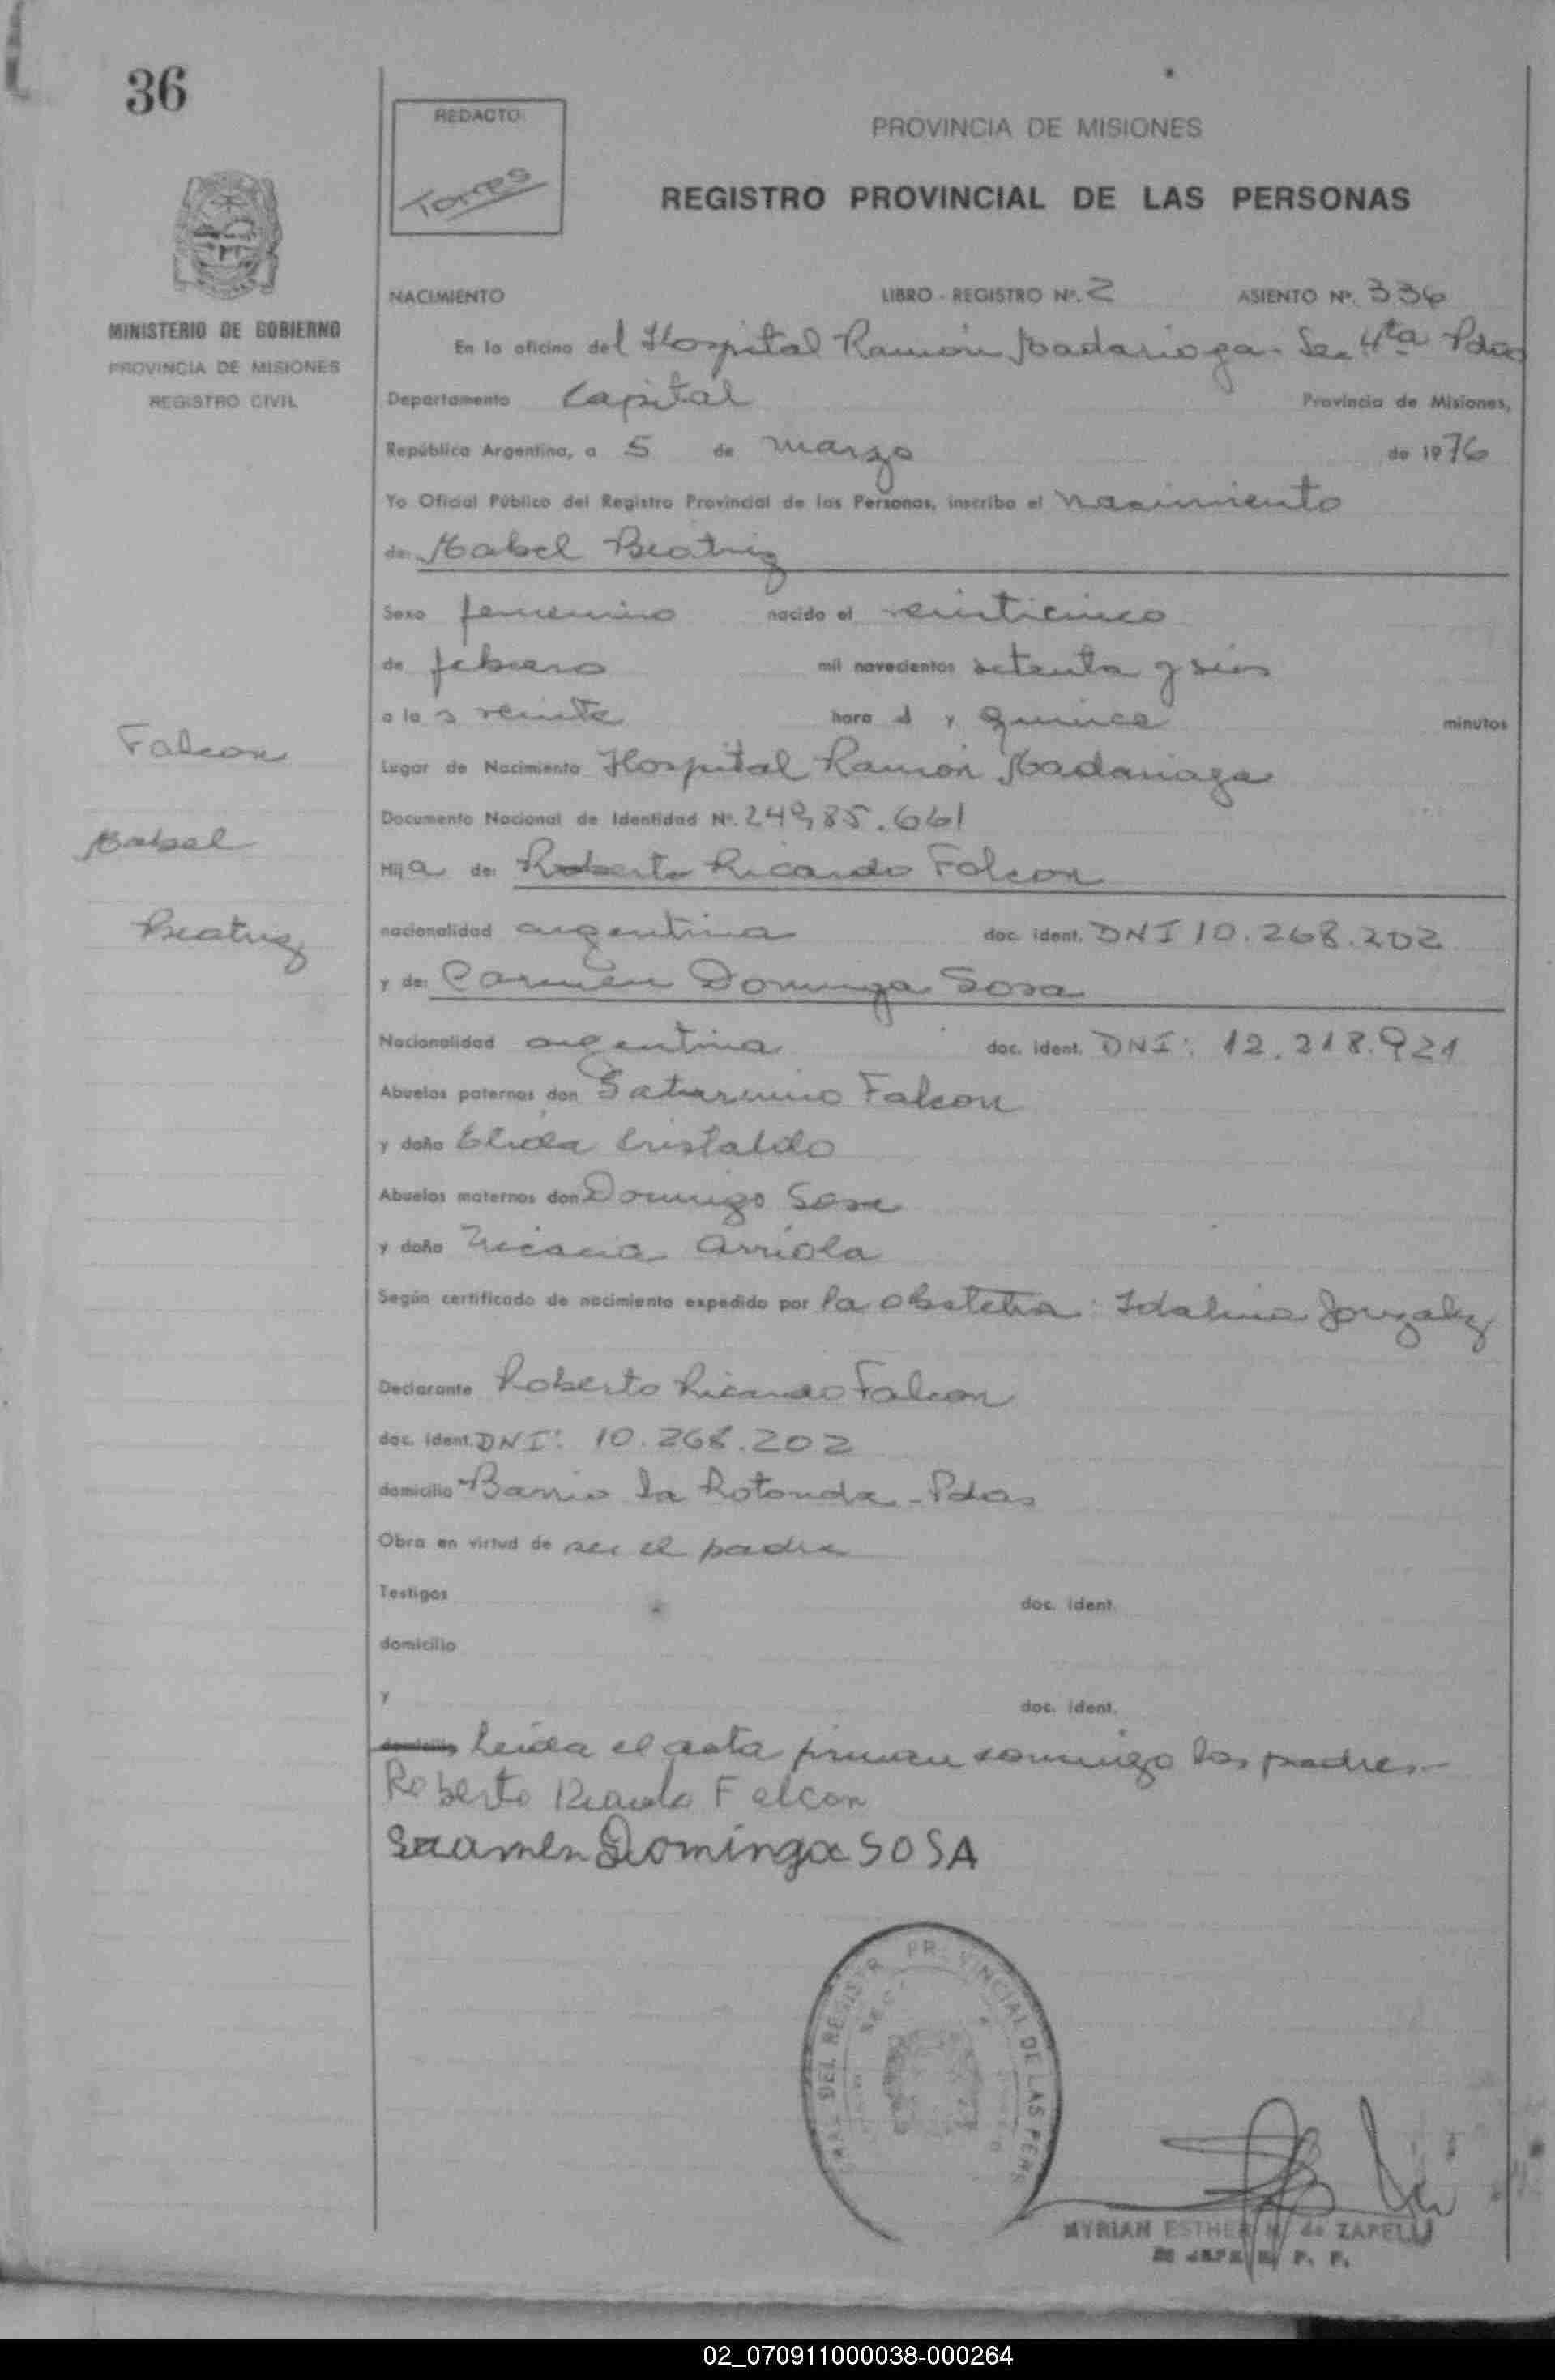 36
REDACTO:
Torres
PROVINCIA DE MISIONES
REGISTRO PROVINCIAL DE LAS PERSONAS
MINISTERIO DE GOBIERNO
PROVINCIA DE MISIONES
REGISTRO CIVIL
NACIMIENTO LIBRO - REGISTRO Nº. 2 ASIENTO Nº. 336
En la oficina del Hospital Ramón Madariaga - Sec 4ta Pdas
Departamento Capital Provincia de Misiones,
República Argentina, a 5 de marzo de 1976
Yo Oficial Público del Registro Provincial de las Personas, inscribo el nacimiento
de: Mabel Beatriz
Sexo femenino nacido el veinticinco
de febrero mil novecientos setenta y seis
a las veinte hora s y quince minutos
Lugar de Nacimiento Hospital Ramón Madariaga
Documento Nacional de Identidad Nº. 24,985.661
Hija de: Roberto Ricardo Falcon
nacionalidad argentina doc. ident. DNI 10.268.202
y de: Carmen Dominga Sosa
Nacionalidad argentina doc. ident. DNI: 12.218.921
Abuelos paternos don Saturnino Falcon
y doña Elida Cristaldo
Abuelos maternos don Domingo Sosa
y doña Nicacia Arriola
Según certificado de nacimiento expedido por la obstetra: Idalina Gonzalez
Declarante Roberto Ricardo Falcon
doc. ident. DNI: 10.268.202
domicilio Barrio la Rotonda - Pdas
Obra en virtud de ser el padre
Testigos doc. ident.
domicilio
y doc. ident.
domicilio Leída el acta firman conmigo los padres.-
Roberto Ricardo Falcon
Dominga SOSA
Falcon
Mabel
Beatriz
DEL REGISTR PR VINCIAL DE LAS PERS
MYRIAN ESTHER M. de ZAPELLI
02_070911000038-000264